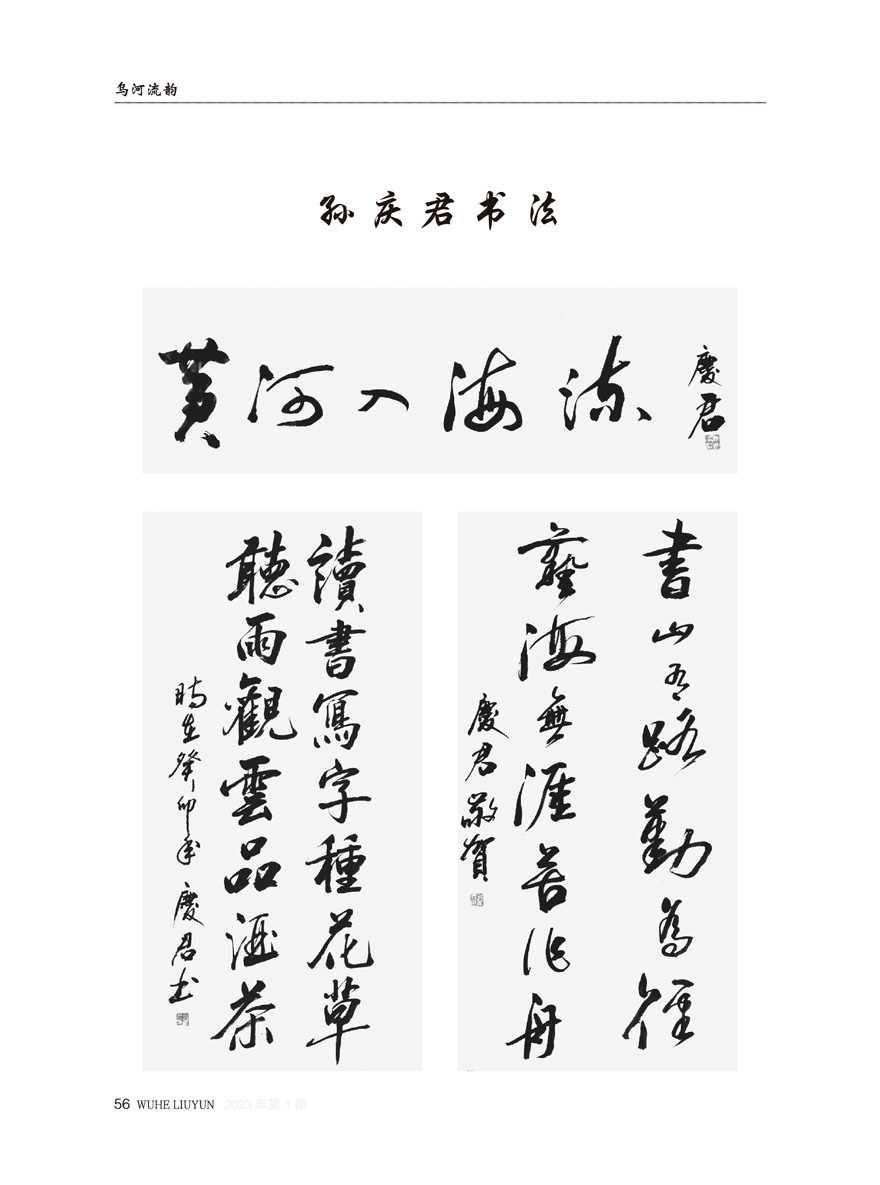 乌河流韵
孙庆君书法
黄河入海流
慶君
讀書寫字種花草
聽雨觀雲品酒茶
時在癸卯年 慶君书
書山有路勤為徑
藝海無涯苦作舟
慶君敬賀
56 WUHE LIUYUN 2023年第1期